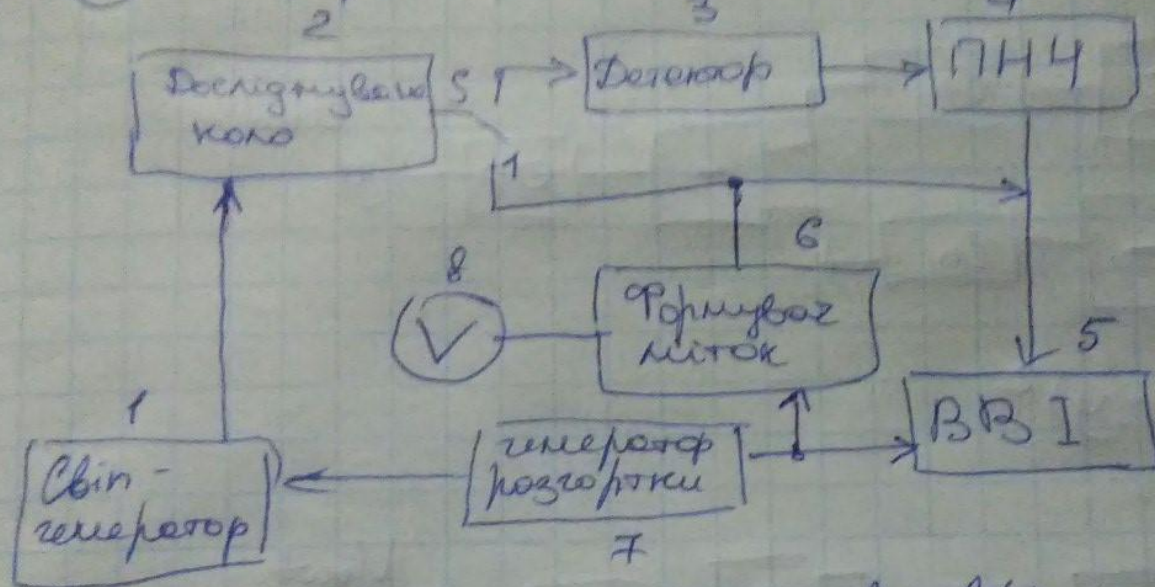 2
3
4
Досліджувань
коло
S
1
Детектор
ПНЧ
1
6
8
V
Формувач
міток
5
ВВІ
1
Свіп-
генератор
генератор
розгортки
7